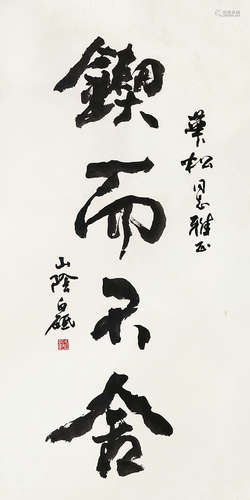 華松同志雅正
鍥而不舍
山陰白砥